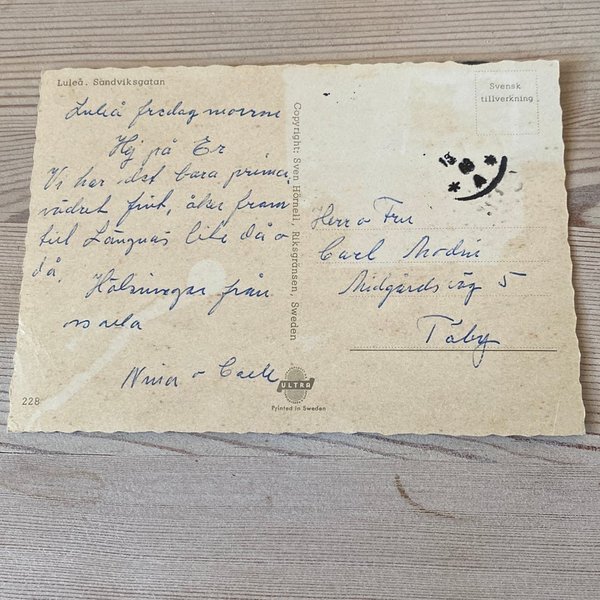 Luleå. Sandviksgatan
Luleå fredag morron
Hej på Er
Vi har det bara prima,
vädret fint, åker fram
till Långnäs lite då o
då.
Hälsningar från
oss
Nina o Calle
228
Copyright: Sven Hörnell, Riksgränsen, Sweden
ULTRA
Printed in Sweden
Svensk
tillverkning
13 8
A
Herr o Fru
Carl Modin
Midgårdsväg 5
Täby